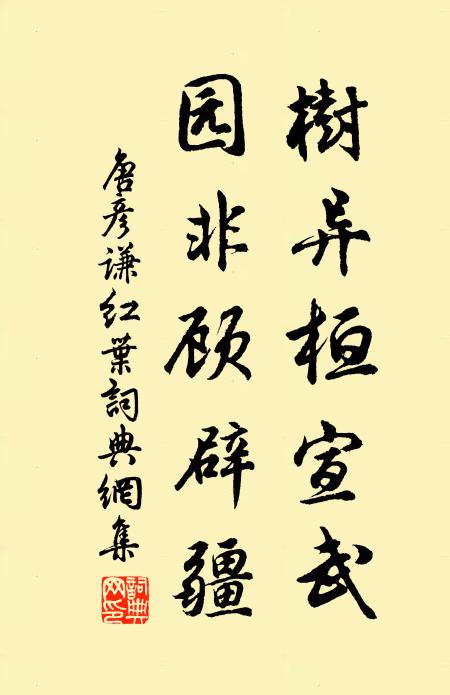 樹异桓宣武
园非顾辟疆
唐彦谦红葉詞典網集
詞典网印